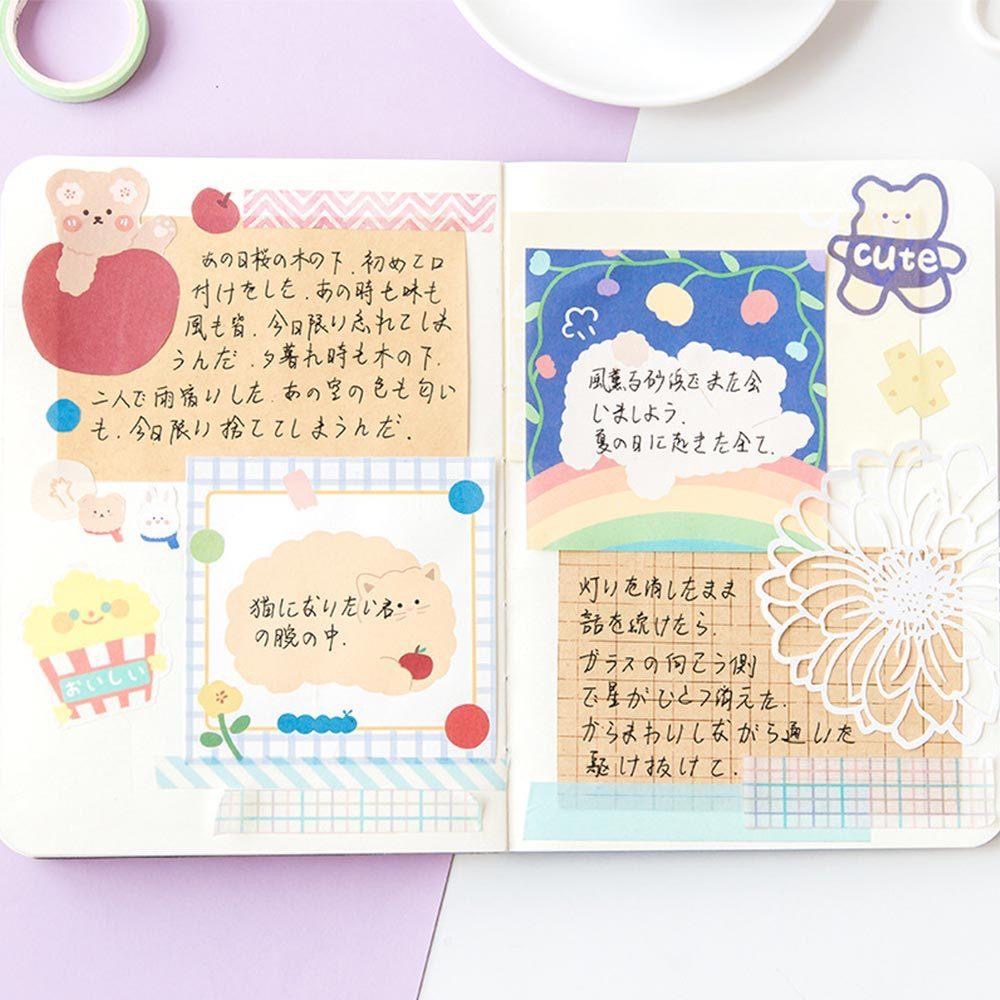 あの日桜の木の下．初めて口
付けをした．あの時も味も
風も皆．今日限り忘れてしま
うんだ．夕暮れ時も木の下．
二人で雨宿りした．あの空の色も匂い
も．今日限り捨ててしまうんだ．
猫になりたい君
の腕の中．
おいしい
cute
風薫る砂浜でまた会
いましよう．
夏の日に起きた全て．
灯りを消したまま
話を続けたら．
ガラスの向こう側
で星がひとつ消えた．
からまわりしながら通いた
駆け抜けて．